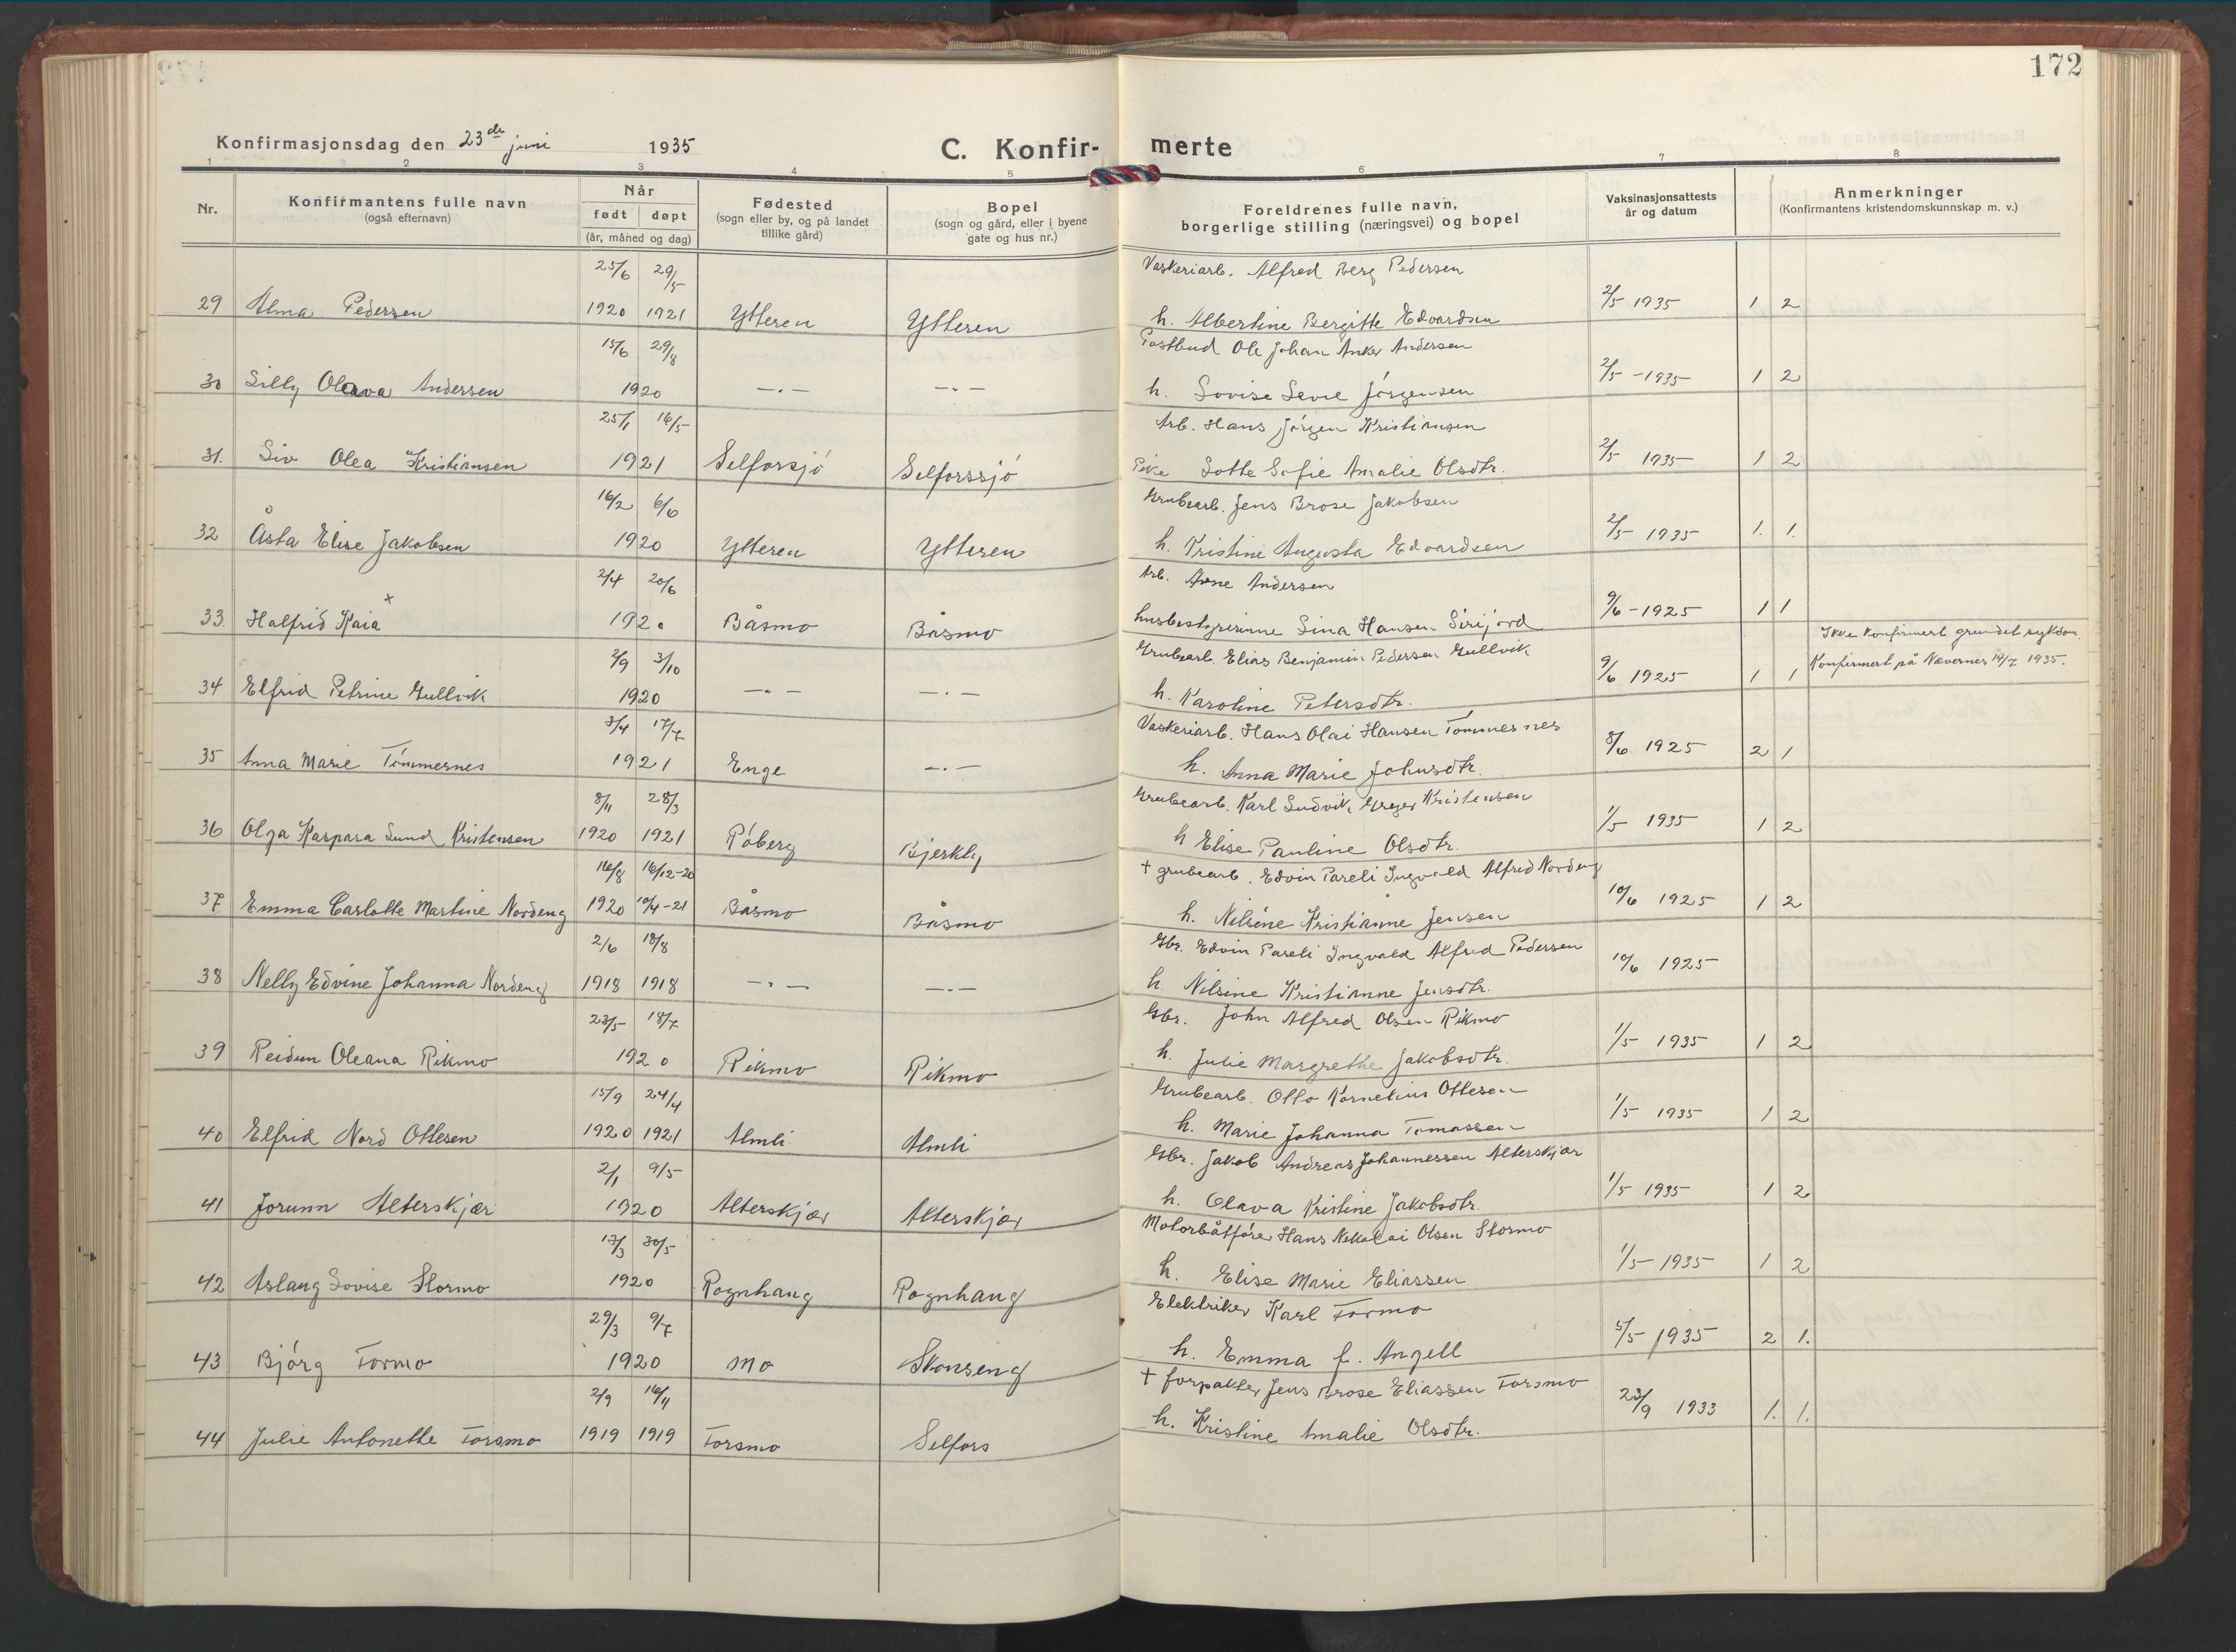 172
Konfirmasjonsdag den 23de juni 1935
C. Konfir- merte
1 2 3 4 5 6 7 8
Nr.
Konfirmantens fulle navn
(også efternavn)
Når
født døpt
(år, måned og dag)
Fødested
(sogn eller by, og på landet
tillike gård)
Bopel
(sogn og gård, eller i byene
gate og hus nr.)
Foreldrenes fulle navn,
borgerlige stilling (næringsvei) og bopel
Vaksinasjonsattests
år og datum
Anmerkninger
(Konfirmantens kristendomskunnskap m. v.)
25/6 29/5 Vaskeriarb. Alfred Berg Pedersen
29 Alma Pedersen 1920 1921 Ytteren Ytteren h. Albertine Bergitte Edvardsen 2/5 1935 1 2
15/6 29/8 Postbud Ole Johan Anker Andersen
30 Lilly Olava Andersen 1920 —„— —„— h. Lovise Jörgensen 2/5 - 1935 1 2
25/1 16/5 Arb. Hans Jörgen Kristiansen
31. Liv Olea Kristiansen 1921 Selforsjö Selforssjö Pike Lotte Sofie Amalie Olsdtr. 2/5 1935 1 2
16/2 6/6 Grubearb. Jens Brose Jakobsen
32 Åsta Elise Jakobsen 1920 Ytteren Ytteren h. Kristine Augusta Edvardsen 2/5 - 1935 1. 1.
2/4 20/6 Arb. Arne Andersen
33. Halfrid Kaia x 1920 Båsmo Båsmo husbestyrerinne Lina Hansen Sörfjord 9/6 - 1925 1 1
Ikke konfirmert grundet sykdom.
2/9 3/10 Grubearb. Elias Benjamin Pedersen Gullvik
Konfirmert på Nævernes 14/7 1935.
34 Elfrid Petrine Gullvik 1920 —„— —„— h. Karoline Petersdtr. 9/6 1925 1 1
3/4 17/7 Vaskeriarb. Hans Olai Hansen Tömmernes
35 Anna Marie Tömmernes 1921 Enge —„— h. Anna Marie Johnsdtr. 8/6 1925 2 1
8/11 28/3 Grubearb. Karl Ludvik Greger Kristensen
36 Olga Kaspara Lund Kristensen 1920 1921 Röberg Bjerkly h Elise Pauline Olsdtr. 1/5 1935 1 2
16/8 16/12-20 † grubearb. Edvin Pareli Ingvald Alfred Nordeng
37 Emma Carlotte Martine Nordeng 1920 10/4-21 Båsmo Båsmo h. Nilsine Kristianne Jensen 10/6 1925 1 2
2/6 18/8 Gbr. Edvin Pareli Ingvald Alfred Pedersen
38 Nelly Edvine Johanna Nordeng 1918 1918 —„— —„— h. Nilsine Kristianne Jensdtr. 10/6 1925
23/5 18/7 Gbr. John Alfred Olsen Rikmo
39 Reidun Oleana Rikmo 1920 Rikmo Rikmo h. Julie Margrethe Jakobsdtr. 1/5 1935 1 2
15/9 24/4 Grubearb. Otto Kornelius Ottesen
40 Elfrid Nord Ottesen 1920 1921 Almli Almli h. Marie Johanna Tomassen 1/5 1935 1 2
2/1 9/5 Gbr. Jakob Andreas Johannessen Alterskjær
41 Jorunn Alterskjær 1920 Alterskjær Alterskjær h. Olava Kristine Jakobsdtr. 1/5 1935 1 2
17/3 30/5 Motorbåtförer Hans Nekolai Olsen Stormo
42 Aslaug Lovise Stormo 1920 Rognhaug Rognhaug h. Elise Marie Eliassen 1/5 - 1935 1 2
29/3 9/7 Elektriker Karl Formo
43 Bjørg Formo 1920 Mo Skonseng h. Emma f. Angell 5/5 1935 2 1.
2/9 16/11 † forpakter Jens Brose Eliassen Forsmo
44 Julie Antonette Forsmo 1919 1919 Forsmo Selfors h. Kristine Amalie Olsdtr. 23/9 1933 1. 1.